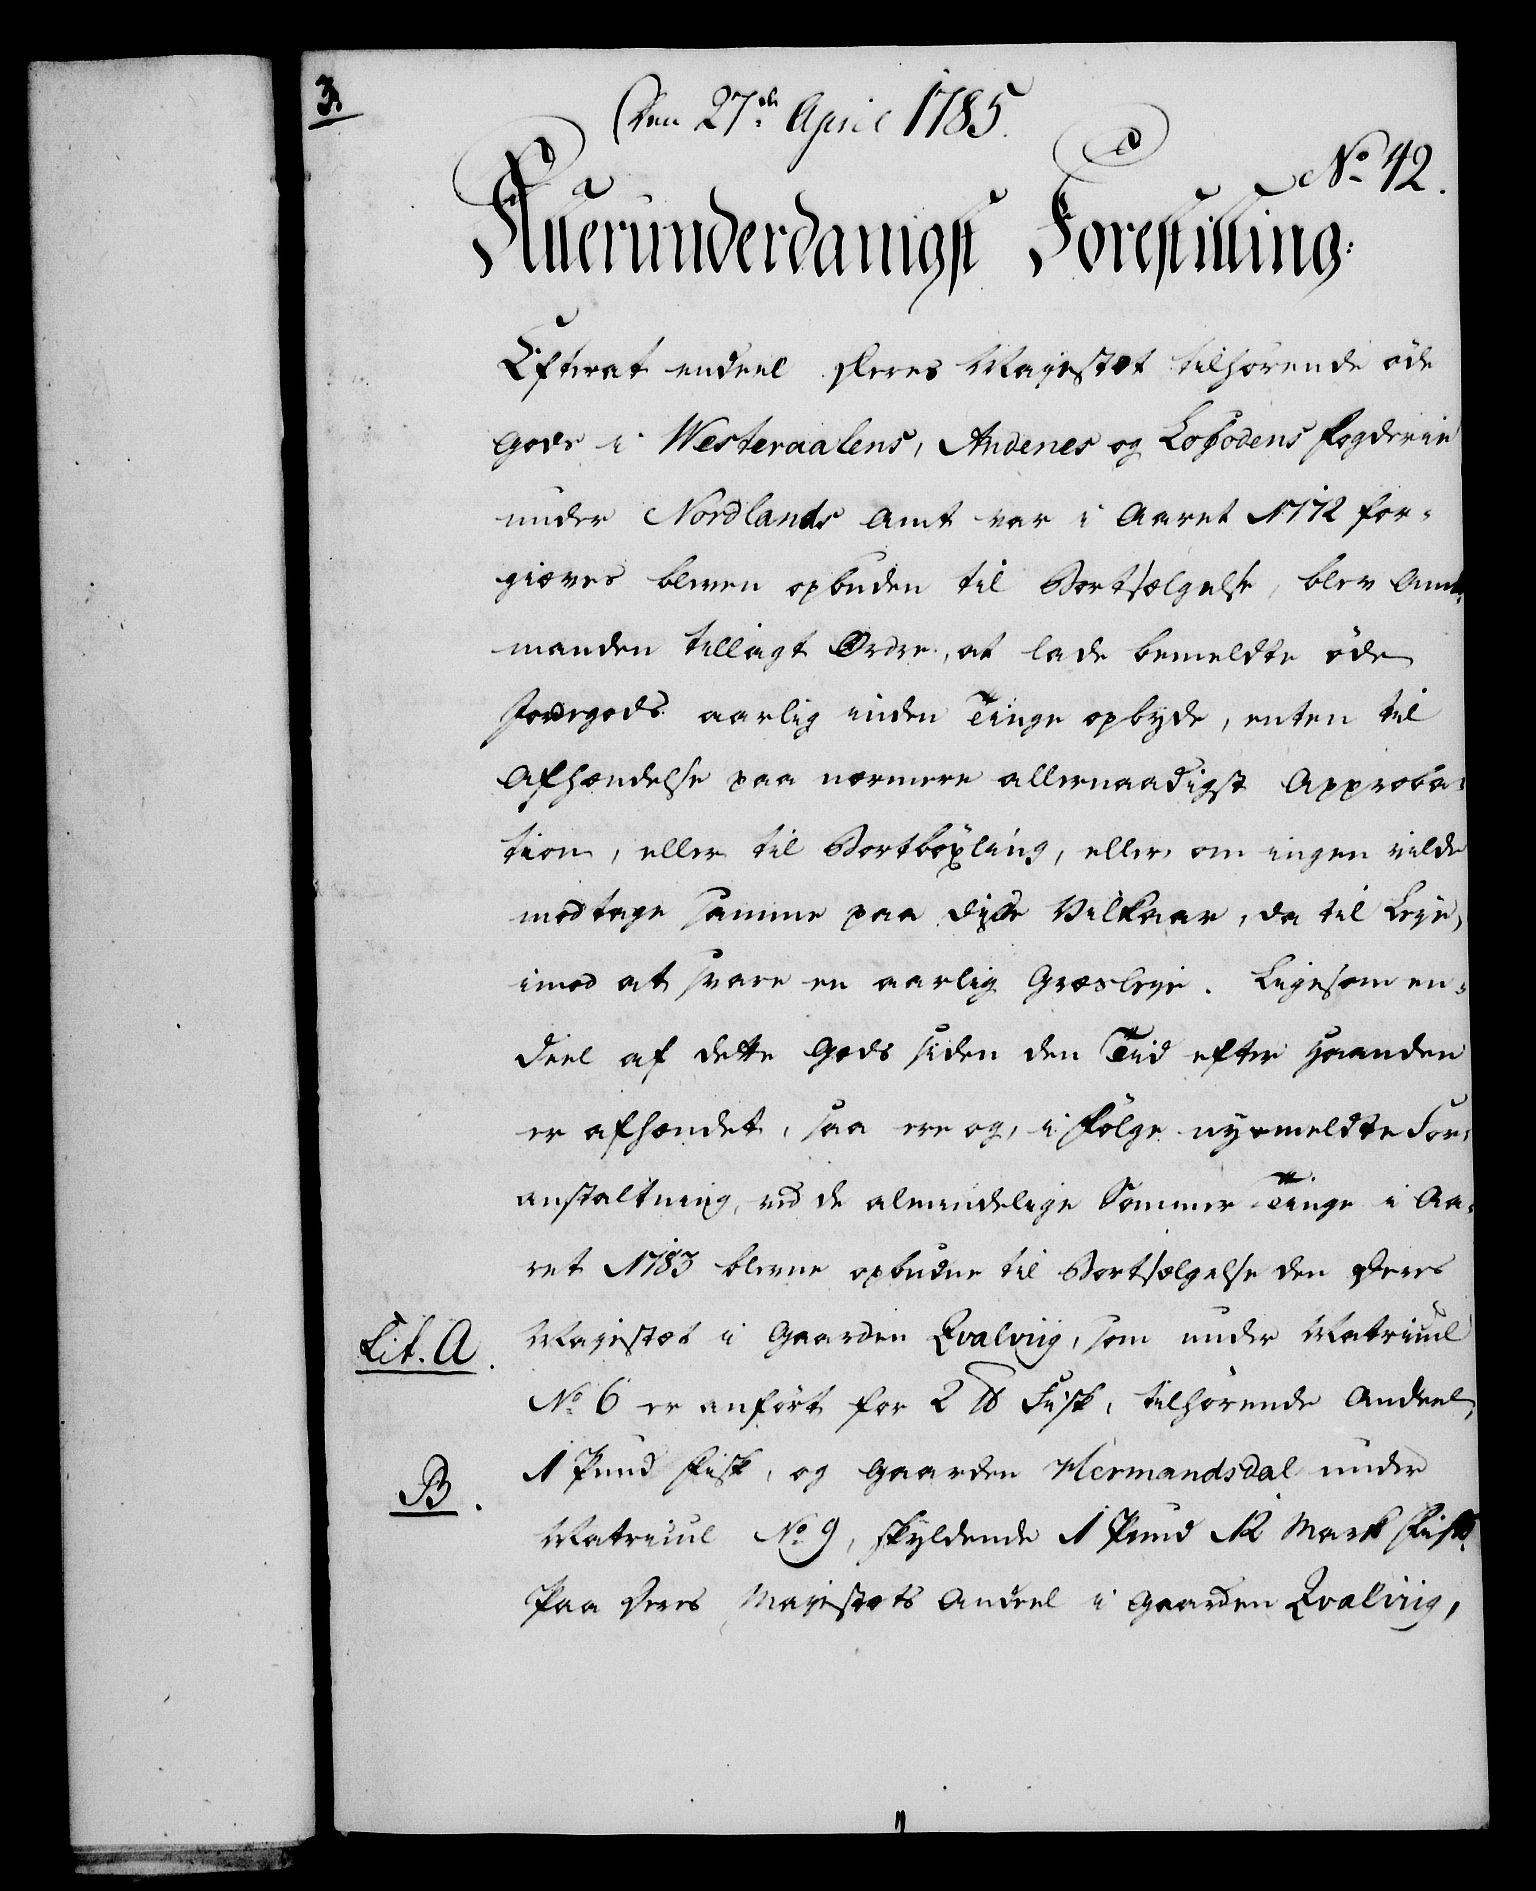 3.
Den 27de April 1785.
No 42.
Allerunderdanigst Forestilling:
Efterat endeel Deres Majestæt tilhørende øde
Gods i Westeraalens, Andenes og Lofodens Fogderie
under Nordlands Amt var i Aaret 1772 for-
giæves bleven opbuden til Bortsælgelse, blev Amt-
manden tillagt Ordre, at lade bemeldte øde
Jordegods aarlig inden Tinge opbyde, enten til
Afhændelse paa nærmere allernaadigst Approba-
tion, eller til Bortböxling, eller om ingen vilde
modtage samme paa disse Vilkaar, da til Leje,
imod at svare en aarlig Græsleje. Ligesom en-
deel af dette Gods siden den Tiid efter Haanden
er afhændet, saa ere og, i Følge nysmeldte For-
anstaltning, ved de almindelige Sommer-Tinge i Aa-
ret 1783 blevne opbudne til Bortsælgelse den Deres
Lit. A. Majestæt i Gaarden Qvalviig, som under Matricul
No 6 er anført for 2 ℔ Fisk, tilhørende Andeel,
B. 1 Pund Fisk, og Gaarden Hermandsdal under
Matricul No 9, skyldende 1 Pund 12 Mark Fisk.
Paa Deres Majestæts Andeel i Gaarden Qvalviig,